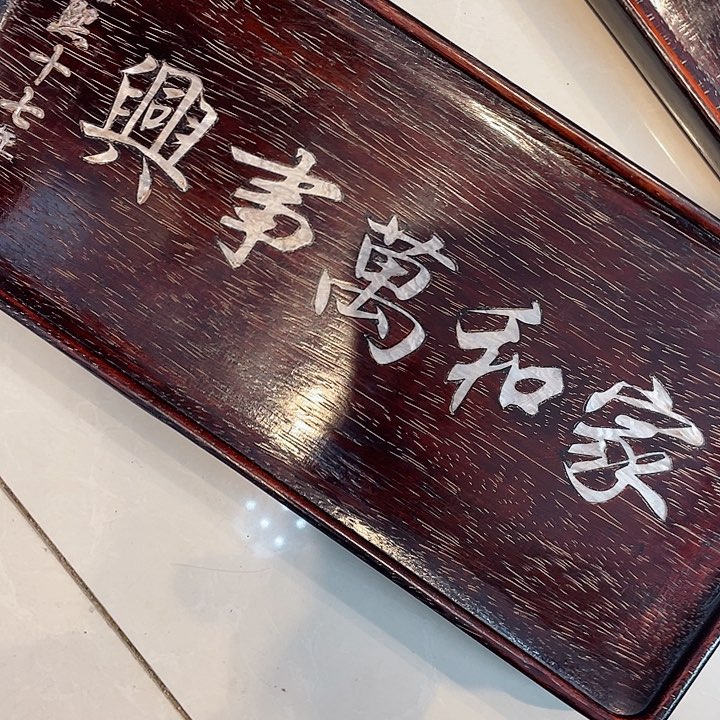 家和萬事興
十七年